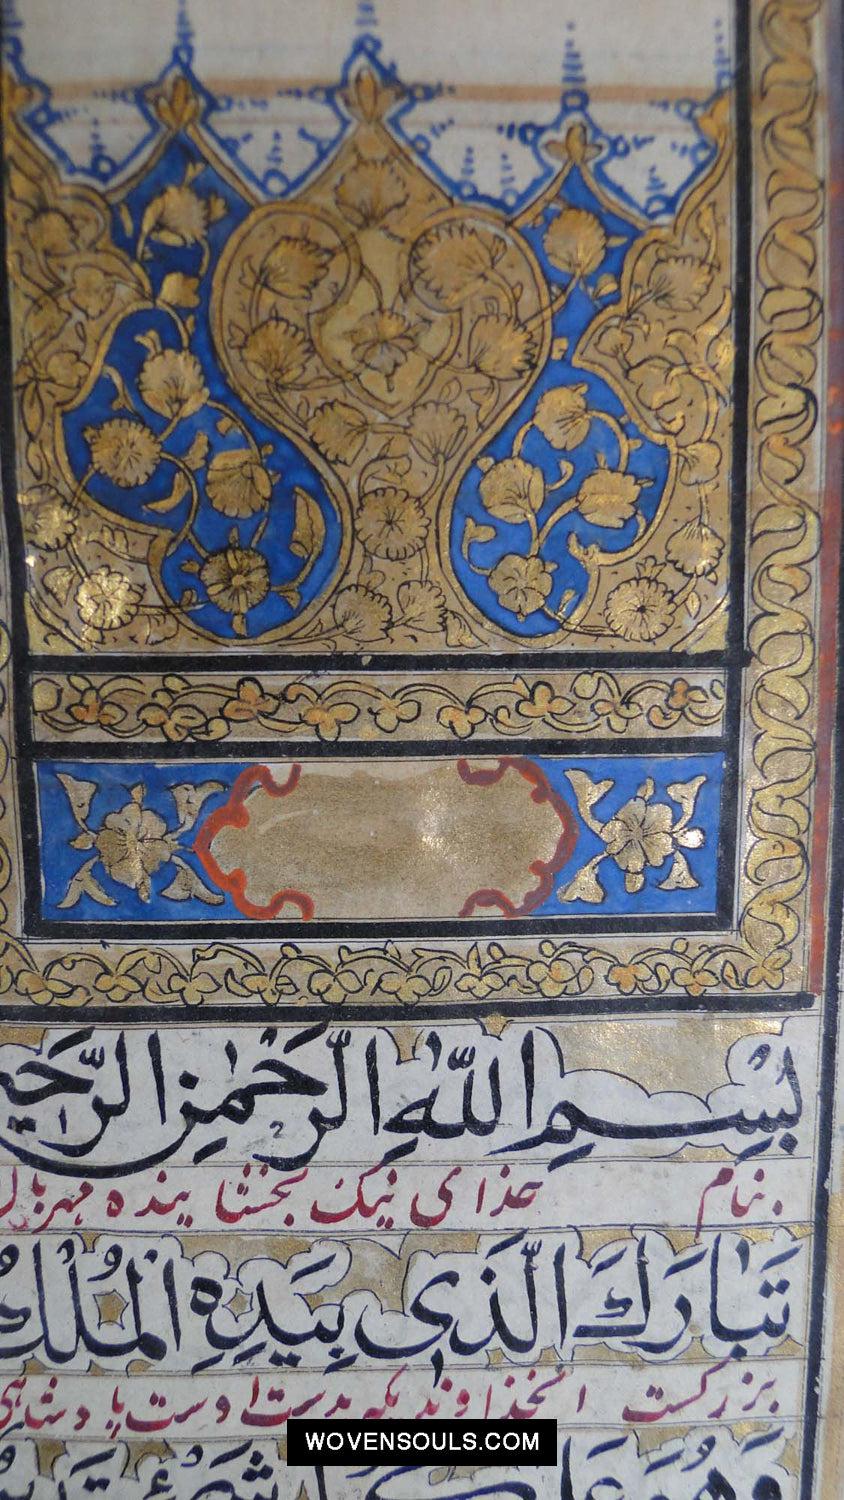 بِسْمِ اللَّهِ الرَّحْمٰنِ الرَّحِي
بنام خدای نیک بخشاینده مهربان
تَبَارَكَ الَّذِي بِيَدِهِ الْمُلْكُ
بزرگست انخداوندیکه بدست اوست پادشاهی
وَهُوَ عَلَى
WOVENSOULS.COM